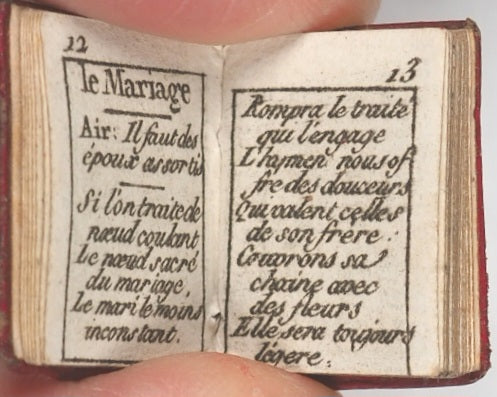 12
le Mariage
Air: Il faut des
époux assortis
Si l'on traite de
nœud coulant
Le nœud sacré
du mariage,
Le mari le moins
inconstant.
13
Rompra le traité
qui l'engage
L'hymen nous of
fre des douceurs
Qui valent celles
de son frere:
Couvrons sa
chaine avec
des fleurs
Elle sera toujours
légere.